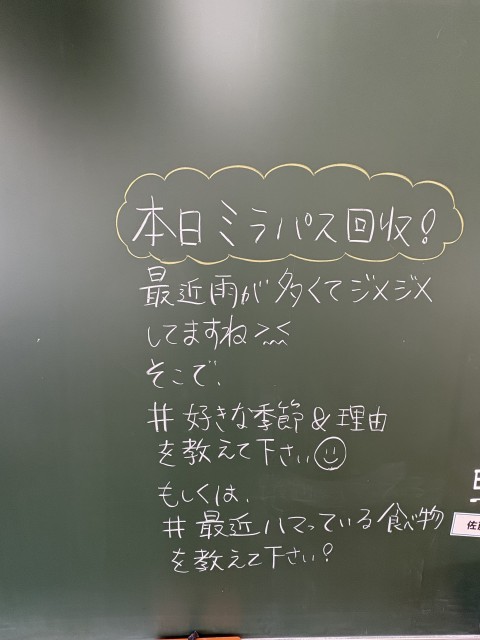 本日ミラパス回収!
最近雨が多くてジメジメ
してますね>﹏<
そこで、
#好きな季節&理由
を教えて下さい☺
もしくは、
#最近ハマっている食べ物
を教えて下さい?